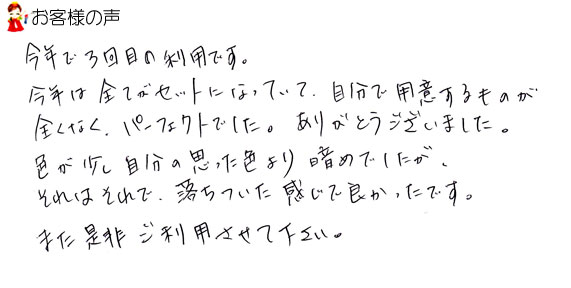 お客様の声
今年で3回目の利用です。
今年は全てがセットになっていて、自分で用意するものが
全くなく、パーフェクトでした。ありがとうございました。
色が少し自分の思った色より暗めでしたが、
それはそれで、落ちついた感じで良かったです。
また是非ご利用させて下さい。